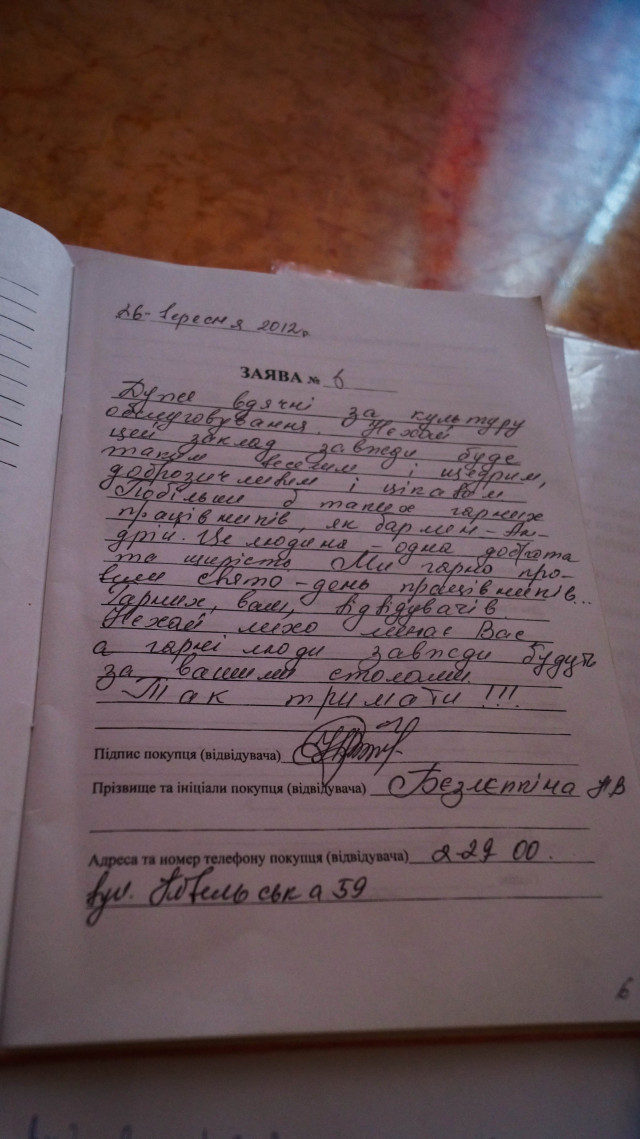 26 - вересня 2012 р
ЗАЯВА № 6
Дуже вдячні за культуру
обслуговування. Нехай
цей заклад завжди буде
таким веселим і щедрим,
доброзичливим і цікавим
Побільше б таких гарних
працівників, як бармен - Ан-
дрій. Це людина - одна доброта
та щирість. Ми гарно про-
вели свято - день працівників...
Гарних, вам, відвідувачів.
Нехай лихо минає Вас
а гарні люди завжди будуть
за вашими столами.
Так тримати!!!
Підпис покупця (відвідувача)
Прізвище та ініціали покупця (відвідувача) Безлєпкіна НВ
Адреса та номер телефону покупця (відвідувача) 2-29 00.
вул. 59
6